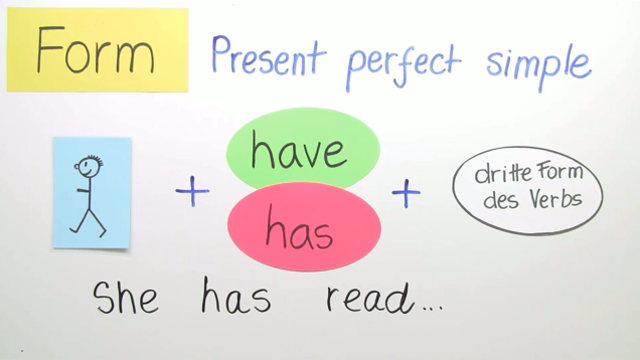 Form
Present perfect simple
+ have +
has
dritte Form
des Verbs
She has read...